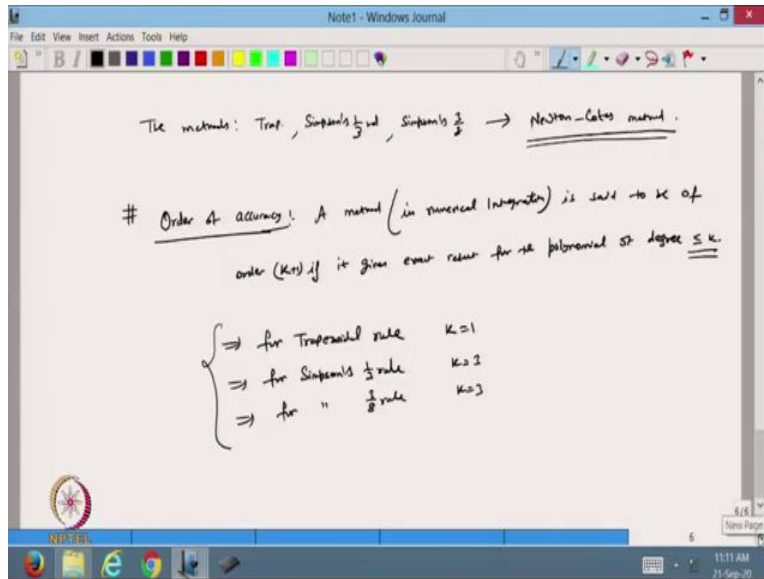 Note1 - Windows Journal
File Edit View Insert Actions Tools Help
B I
The methods: Trap., Simpson's 1/3 rd, Simpson's 3/8 → Newton-Cotes method.
# Order of accuracy: A method (in numerical Integration) is said to be of
order (K+1) if it gives exact result for the polynomial of degree ≤ K.
⇒ for Trapezoidal rule K=1
⇒ for Simpson's 1/3 rule K=3
⇒ for " 3/8 rule K=3
NPTEL
6/6
New Page
6
11:11 AM
21-Sep-20